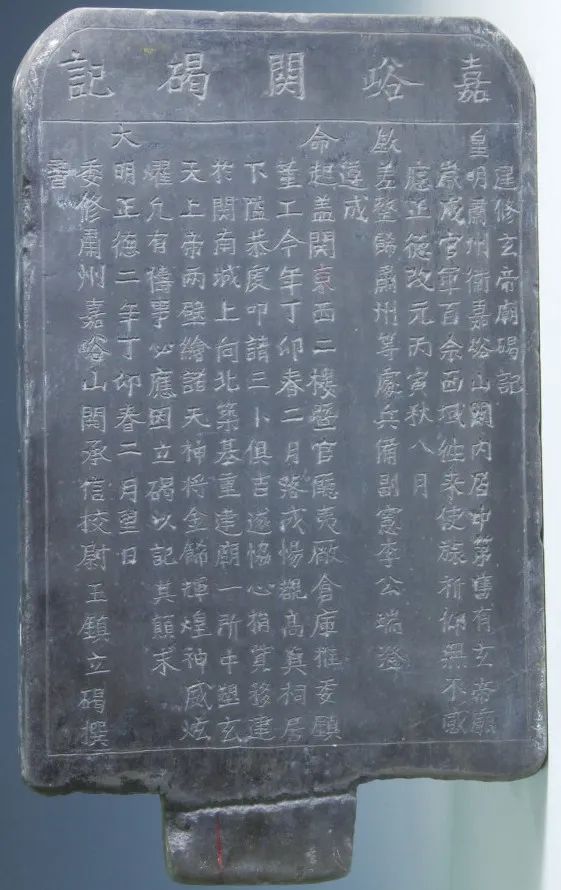 嘉峪関碣記
建修玄帝廟碣記
皇明肅州衛嘉峪山關內居中第舊有玄帝廟
蒙戍官軍百余西域往來使旅祈仰無不感
應正德改元丙寅秋八月
欽差整飭肅州等處兵備副憲李公瑞澄
遵成
命起盖関東西二樓暨官廳夷廠倉庫推委鎮
董工今年丁卯春二月落成惕觀高真祠居
下隘恭虔叩請三卜俱吉遂恊心捐貲移建
於関南城上向北築基重建廟一所中塑玄
天上帝兩壁繪諸天神将金飾輝煌神威炫
耀允有禱孚必應因立碣以記其顛末
大明正德二年丁卯春二月望日
委修肅州嘉峪山関承信校尉王鎮立碣撰
書